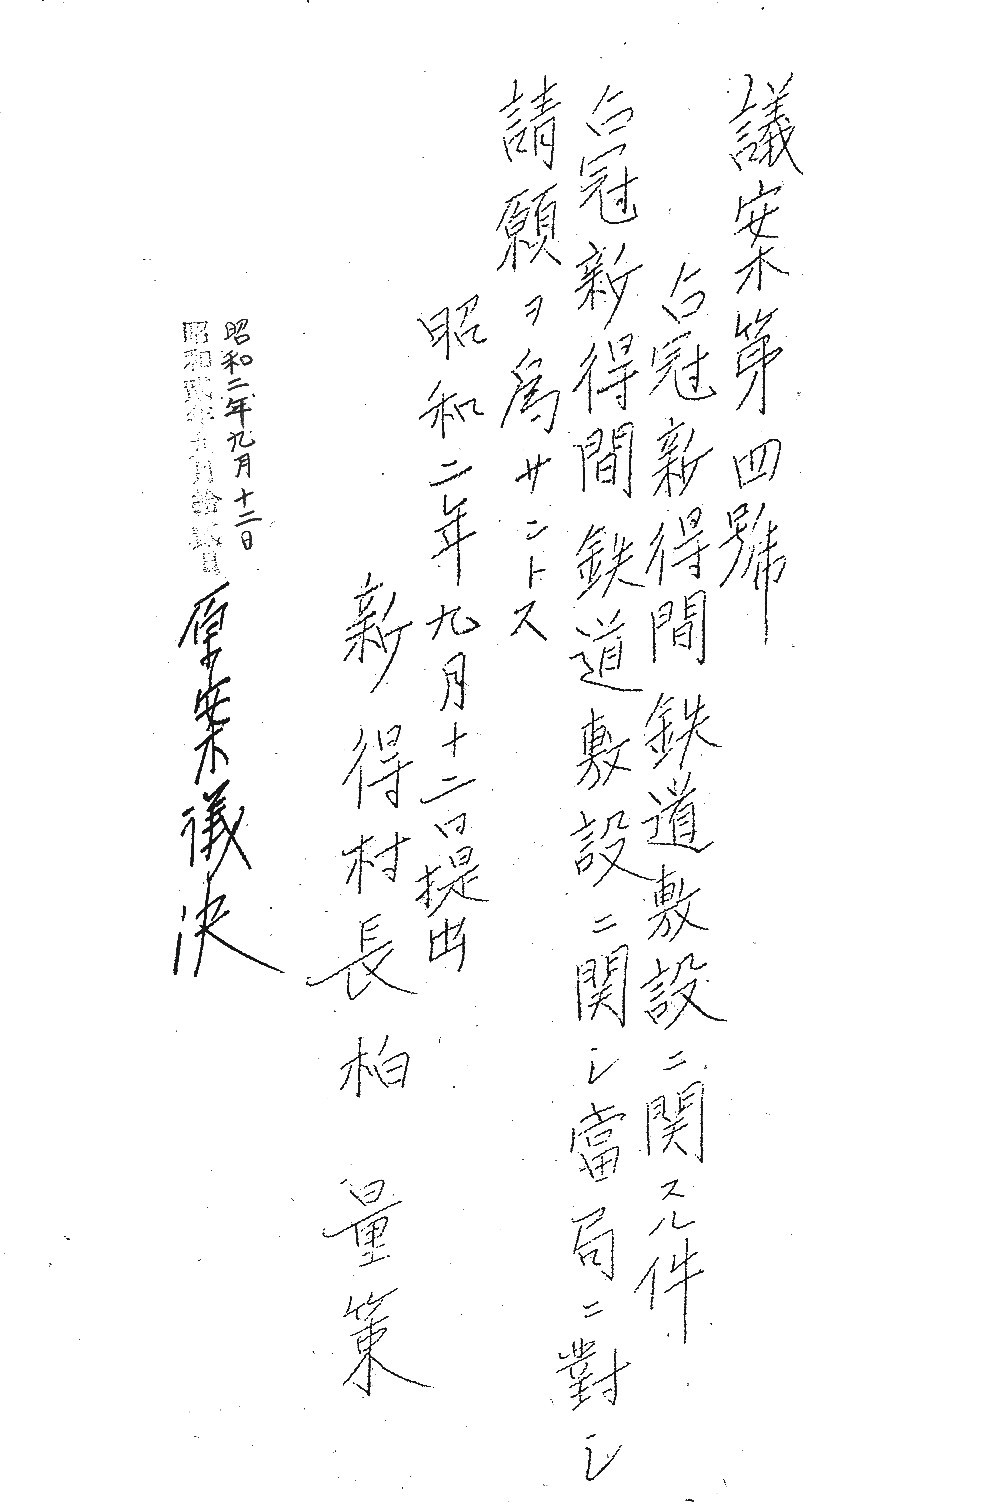 議案第四號
占冠新得間鉄道敷設ニ関スル件
占冠新得間鉄道敷設ニ関シ當局ニ對シ
請願ヲ為サントス
昭和二年九月十二日提出
新得村長柏 量策
昭和二年九月十二日
昭和貳年九月拾貳日
原案議決